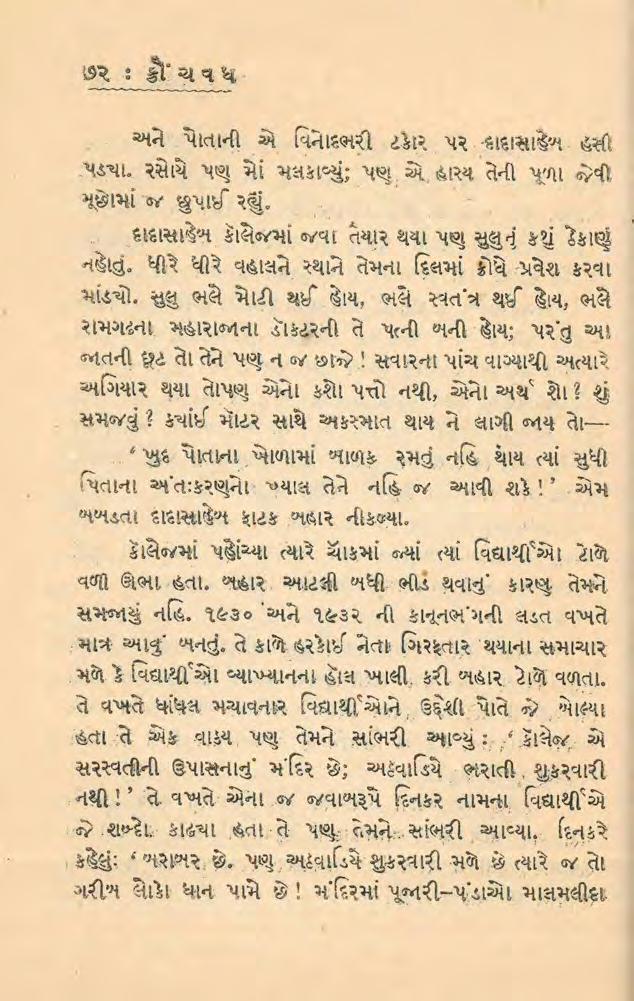 ૭૨ : ક્રૌંચવધ
અને પોતાની એ વિનોદભરી ટકોર પર દાદાસાહેબ હસી
પડ્યા. રસોયે પણ મોં મલકાવ્યું; પણ એ હાસ્ય તેની પૂળા જેવી
મૂછોમાં જ છુપાઈ રહ્યું.
દાદાસાહેબ કૉલેજમાં જવા તૈયાર થયા પણ સુલુનું કશું ઠેકાણું
નહોતું. ધીરે ધીરે વહાલને સ્થાને તેમના દિલમાં ક્રોધે પ્રવેશ કરવા
માંડ્યો. સુલુ ભલે મોટી થઈ હોય, ભલે સ્વતંત્ર થઈ હોય, ભલે
રામગઢના મહારાજાના ડૉક્ટરની તે પત્ની બની હોય; પરંતુ આ
જાતની છૂટ તો તેને પણ ન જ છાજે! સવારના પાંચ વાગ્યાથી અત્યારે
અગિયાર થયા તોપણ એનો કશો પત્તો નથી, એનો અર્થ શો? શું
સમજવું? ક્યાંઈ મૉટર સાથે અકસ્માત થાય ને લાગી જાય તો—
‘ ખુદ પોતાના ખોળામાં બાળક રમતું નહિ થાય ત્યાં સુધી
પિતાના અંતઃકરણનો ખ્યાલ તેને નહિ જ આવી શકે!’ એમ
બબડતા દાદાસાહેબ ફાટક બહાર નીકળ્યા.
કૉલેજમાં પહોંચ્યા ત્યારે ચૉકમાં જ્યાં ત્યાં વિદ્યાર્થીઓ ટોળે
વળી ઊભા હતા. બહાર આટલી બધી ભીડ થવાનું કારણ તેમને
સમજાયું નહિ. ૧૯૩૦ અને ૧૯૩૨ ની કાનૂનભંગની લડત વખતે
માત્ર આવું બનતું. તે કાળે હરકોઈ નેતા ગિરફતાર થયાના સમાચાર
મળે કે વિદ્યાર્થીઓ વ્યાખ્યાનના હૉલ ખાલી કરી બહાર ટોળે વળતા.
તે વખતે ધાંધલ મચાવનાર વિદ્યાર્થીઓને ઉદ્દેશી પોતે જે બોલ્યા
હતા તે એક વાક્ય પણ તેમને સાંભરી આવ્યું : ‘ કૉલેજ એ
સરસ્વતીની ઉપાસનાનું મંદિર છે; અઠવાડિયે ભરાતી શુકરવારી
નથી!’ તે વખતે એના જ જવાબરૂપે દિનકર નામના વિદ્યાર્થીએ
જે શબ્દો કાઢ્યા હતા તે પણ તેમને સાંભરી આવ્યા. દિનકરે
કહેલું: ‘ બરાબર છે. પણ અઠવાડિયે શુકરવારી મળે છે ત્યારે જ તો
ગરીબ લોકો ધાન પામે છે! મંદિરમાં પૂજારી-પંડાઓ માલમલીદા